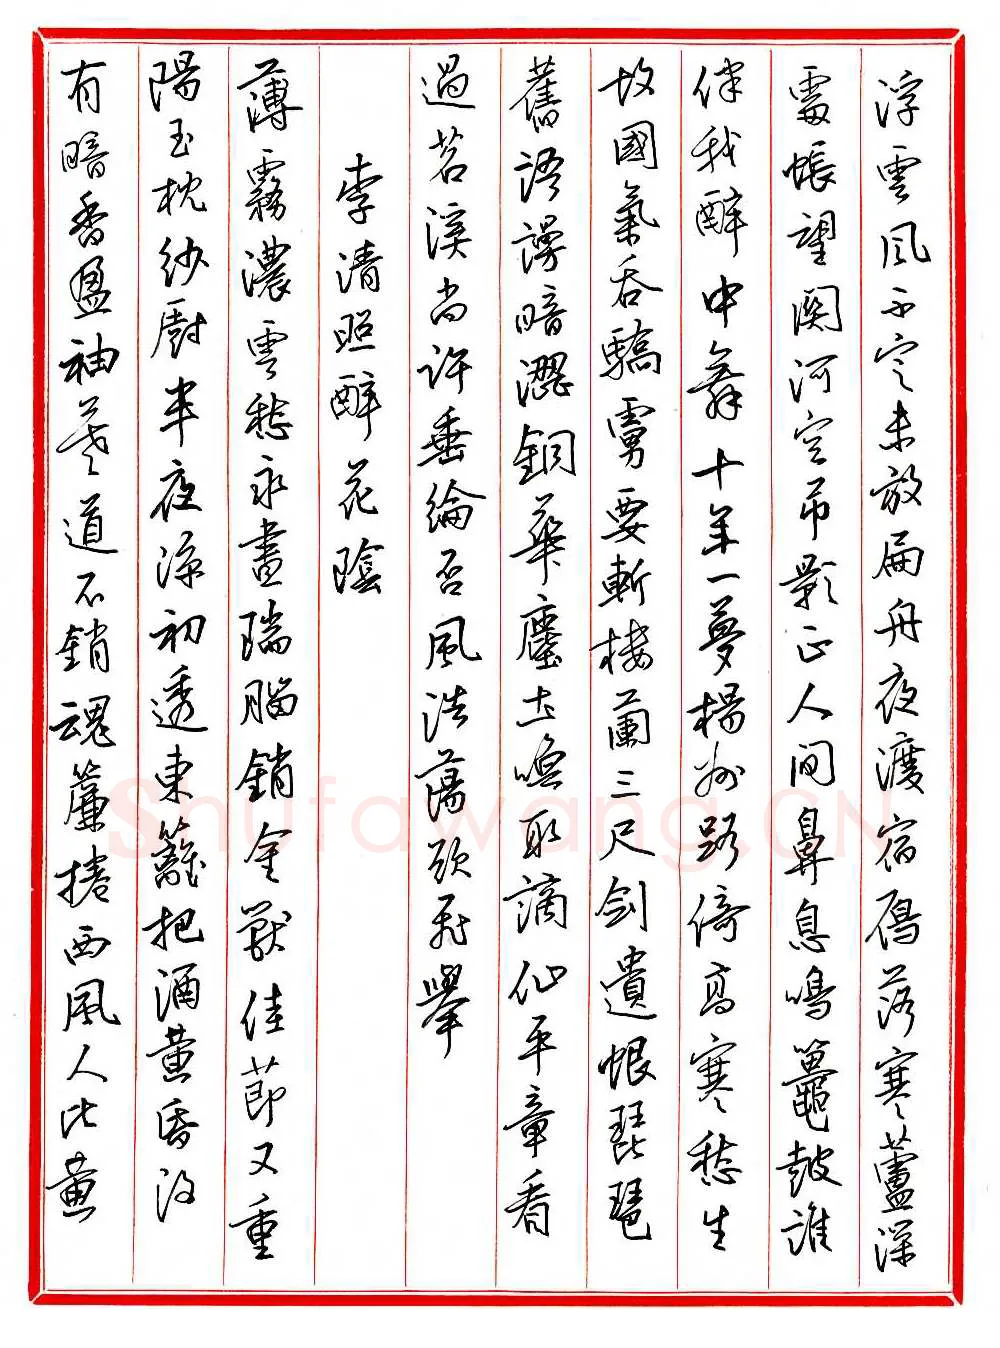 浮雲風不定未放扁舟夜渡宿雁落寒蘆深
處悵望關河空吊影正人間鼻息鳴鼉鼓誰
伴我醉中舞十年一夢揚州路倚高寒愁生
故國氣吞驕虜要斬樓蘭三尺劍遺恨琵琶
舊語謾暗澀銅華塵土喚取謫仙平章看
過苕溪尚許垂綸否風浩蕩欲飛舉
李清照醉花陰
薄霧濃雲愁永晝瑞腦銷金獸佳節又重
陽玉枕紗廚半夜涼初透東籬把酒黃昏後
有暗香盈袖莫道不銷魂簾捲西風人比黃
Shufawang.CN